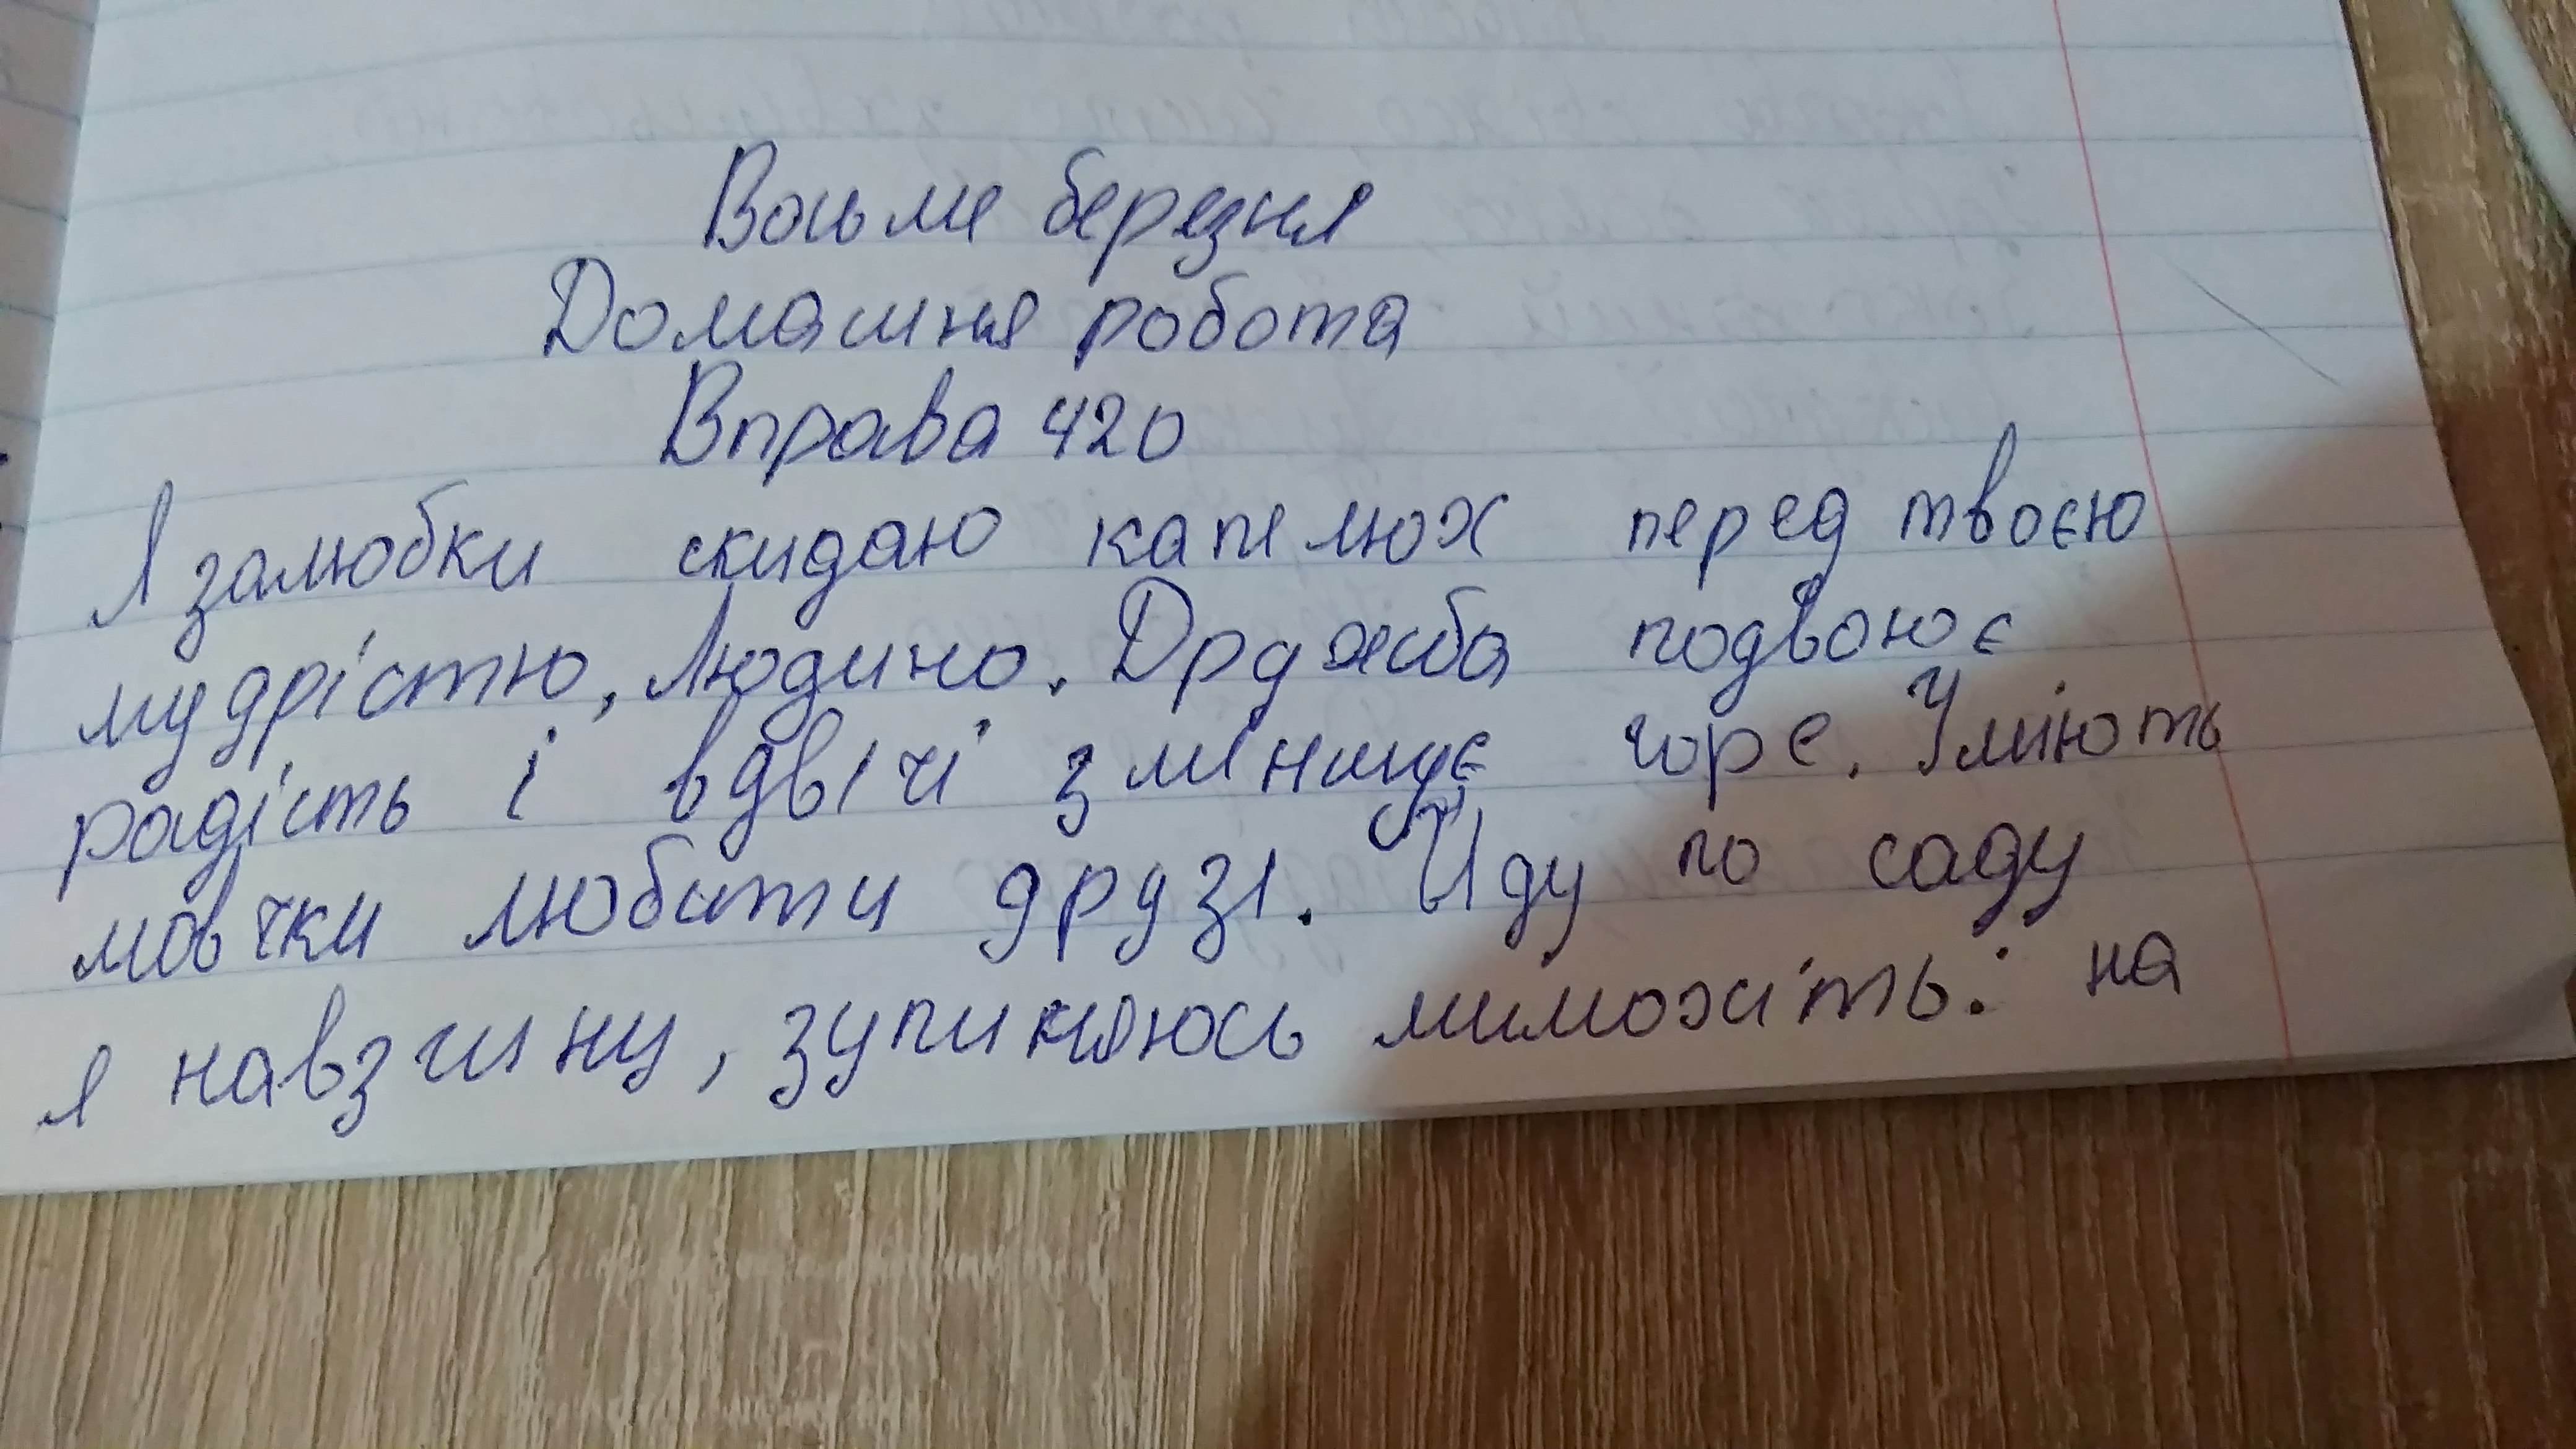 Восьме березня
Домашня робота
Вправа 420
Я залюбки скидаю капелюх перед твоєю
мудрістю, Людино. Дружба подвоює
радість і вдвічі зменшує горе. Уміють
мовчки любити друзі. Йду по саду
я навзгину, зупиняюсь мимохіть: на